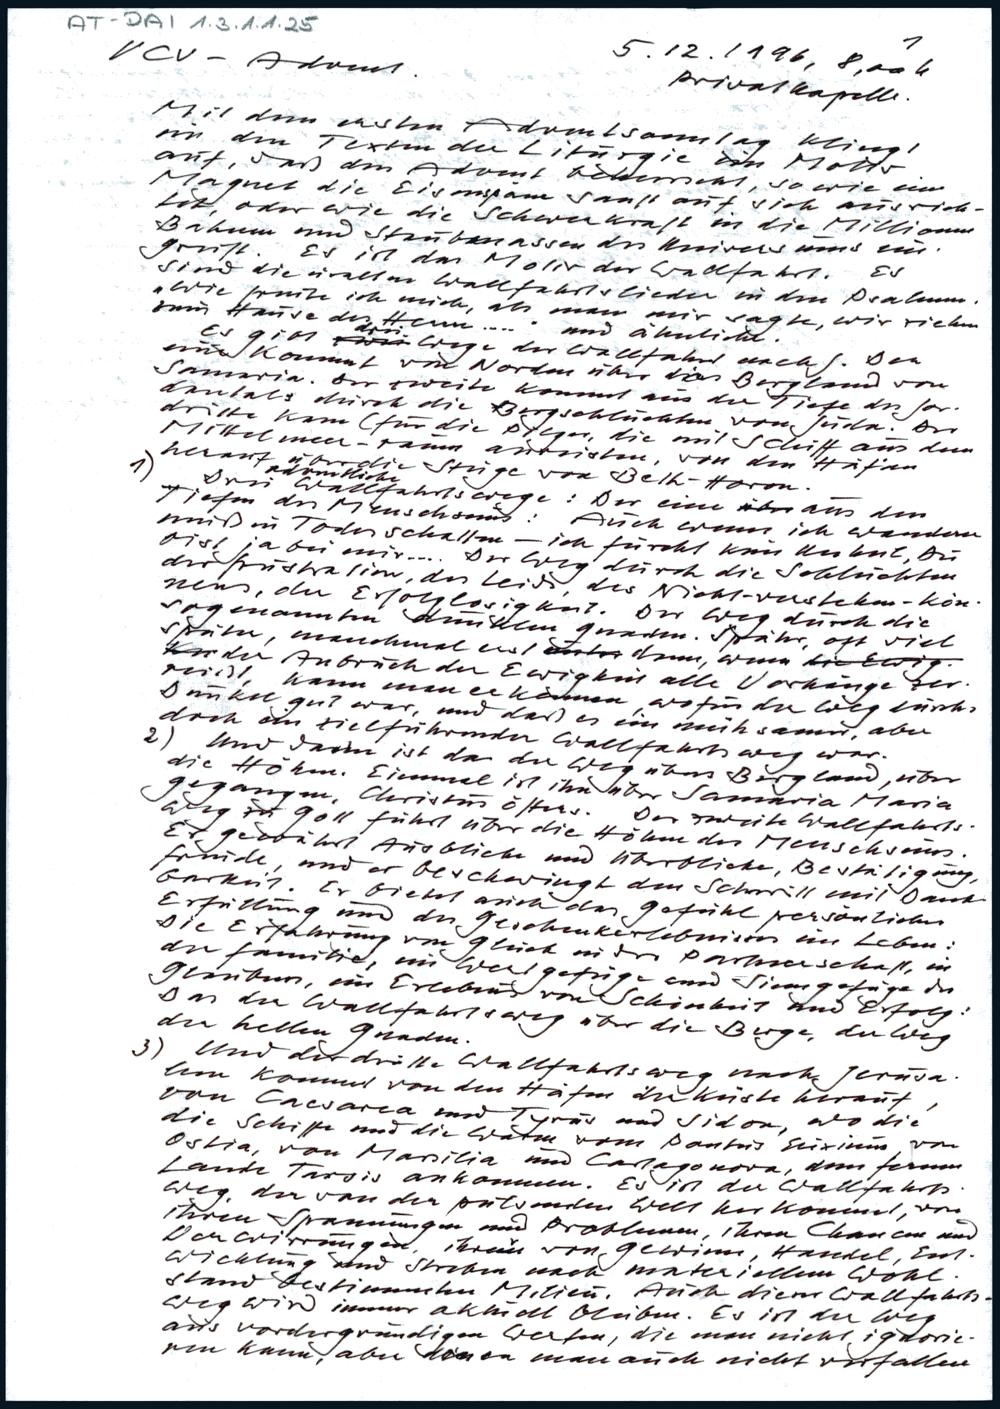 AT-DAI 1.3.1.1.25
1
VCV - Advent.
5.12.1996, 8,00 h
Privatkapelle.
Mit dem ersten Adventsonntag klingt
in den Texten der Liturgie ein Motiv
auf, daß den Advent beherrscht, so wie ein
Magnet die Eisenspäne sanft auf sich ausrich-
tet, oder wie die Schwerkraft in die Millionen
Bahnen und Staubmassen des Universums ein-
greift. Es ist das Motiv der Wallfahrt. Es
sind die uralten Wallfahrtslieder in den Psalmen.
"Wie freute ich mich, als man mir sagte, wir ziehen
zum Hause des Herrn .... und ähnliche.
Es gibt drei Wege der Wallfahrt nach J. Der
eine kommt von Norden über das Bergland von
Samaria. Der zweite kommt aus der Tiefe des Jor-
dantals durch die Bergschluchten von Juda. Der
dritte kam (für die Pilger, die mit Schiff aus dem
Mittelmeer-raum anreisten, von den Häfen
herauf über die Steige von Beth-Horon.
1) Drei adventliche Wallfahrtswege: Der eine aus den
Tiefen des Menschseins: Auch wenn ich wandern
muß in Todesschatten - ich fürcht kein Unheil, Du
bist ja bei mir.... Der Weg durch die Schluchten
der Frustration, des Leids, des Nicht-verstehen-kön-
nens, der Erfolglosigkeit. Der Weg durch die
sogenannten dunklen Gnaden. Später, oft viel
später, manchmal erst dann, wenn
der Anbruch der Ewigkeit alle Vorhänge zer-
reißt, kann man erkennen, wofür der Weg durchs
Dunkel gut war, und daß es ein mühsamer, aber
doch ein zielführender Wallfahrtsweg war.
2) Und dann ist da der Weg übers Bergland, über
die Höhen. Einmal ist ihn über Samaria Maria
gegangen, Christus öfters. Der zweite Wallfahrts-
weg zu Gott führt über die Höhen des Menschseins.
Er gewährt Ausblicke und Überblicke, Bestätigung,
Freude, und er beschwingt den Schritt mit Dank-
barkeit. Er bietet auch das Gefühl persönlicher
Erfüllung und des Geschenkerlebnisses im Leben:
Die Erfahrung von Glück in der Partnerschaft, in
der Familie, im Wertgefüge und Sinngefüge des
Glaubens, im Erlebnis von Schönheit und Erfolg:
Das der Wallfahrtsweg über die Berge, der Weg
der hellen Gnaden.
3) Und der dritte Wallfahrtsweg nach Jerusa-
lem kommt von den Häfen der Küste herauf,
von Caesarea und Tyrus und Sidon, wo die
die Schiffe und die Waren vom Pontus Euxinus, von
Ostia, von Masilia und Cartagonova, dem fernen
Lande Tarsis ankommen. Es ist der Wallfahrts-
weg, der von der pulsenden Welt her kommt, von
ihren Spannungen und Problemen, ihren Chancen und
Verwirrungen, ihrem von Gewinn, Handel, Ent-
wicklung und Streben nach materiellem Wohl-
stand bestimmten Milieu. Auch dieser Wallfahrts-
weg wird immer aktuell bleiben. Es ist der Weg
aus vordergründigen Werten, die man nicht ignorie-
ren kann, aber denen man auch nicht verfallen